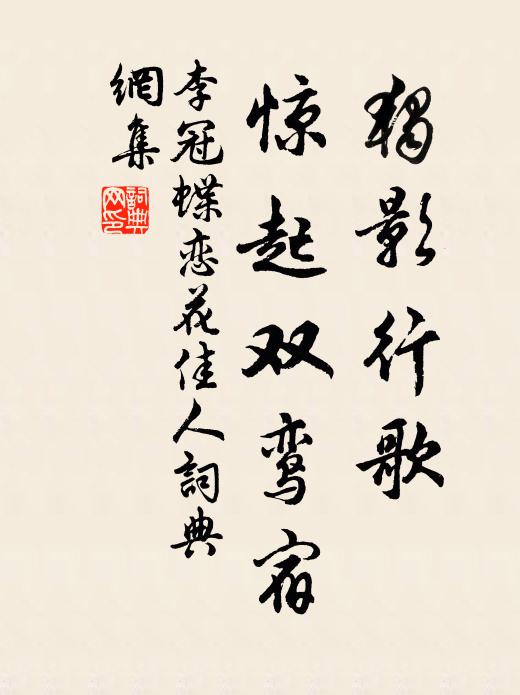 獨影行歌
惊起双鸾宿
李冠蝶恋花佳人詞典
網集
詞典
网印